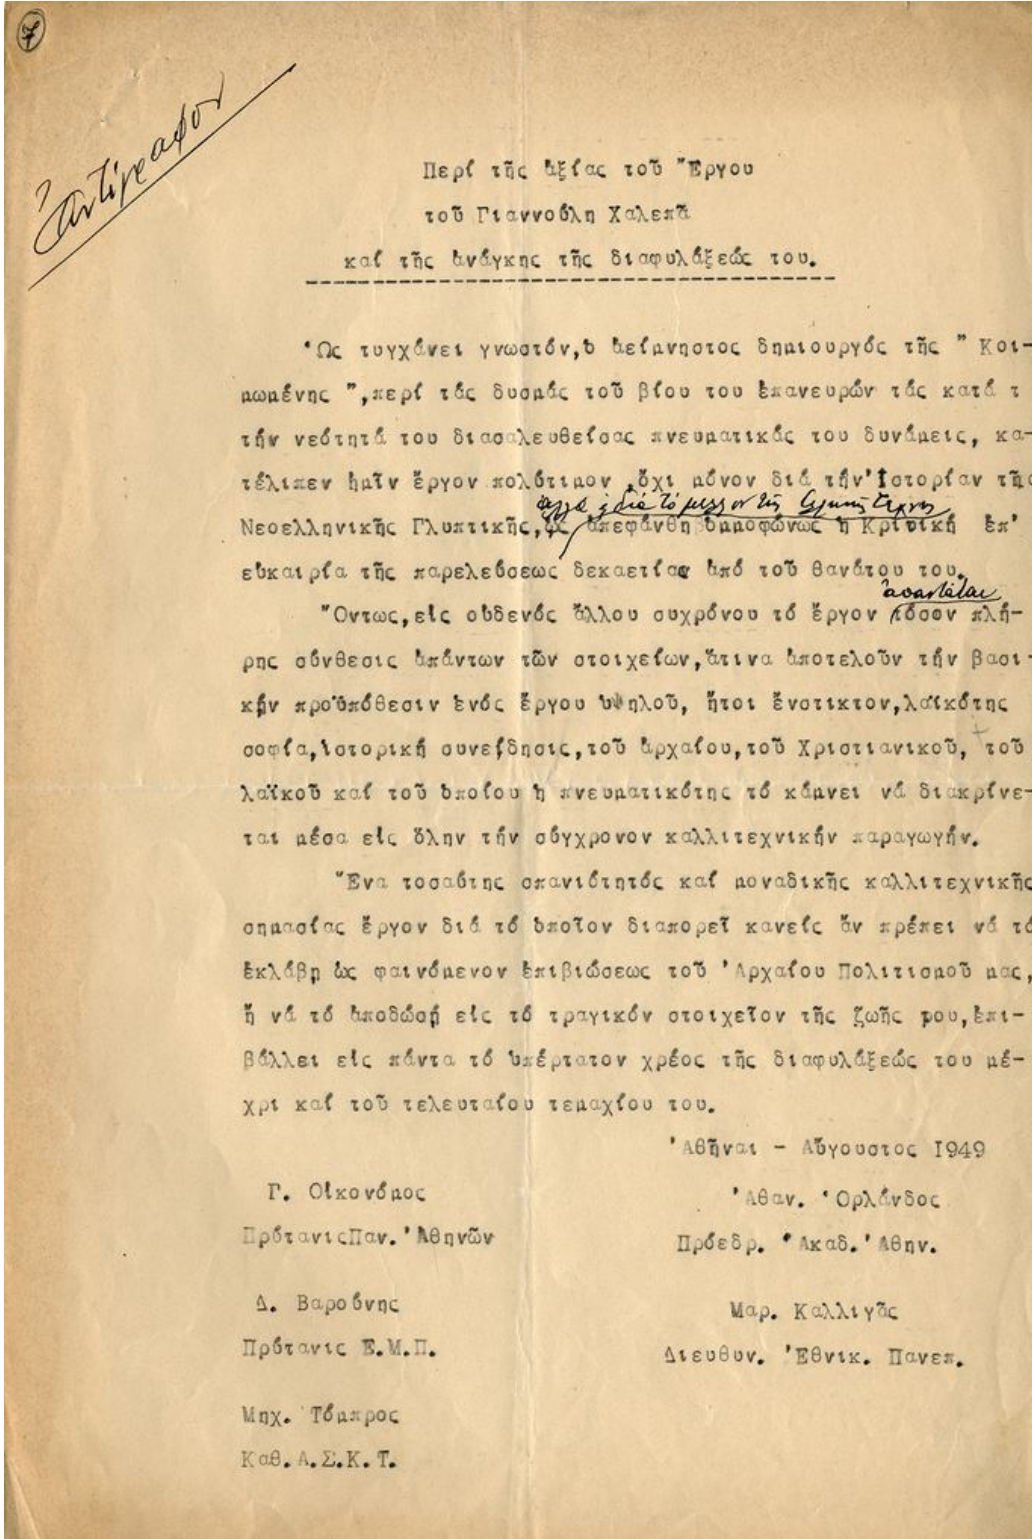 7
Ἀντίγραφον
Περί τῆς ἀξίας τοῦ Ἔργου
τοῦ Γιαννούλη Χαλεπᾶ
καί τῆς ἀνάγκης τῆς διαφυλάξεώς του.
Ὡς τυγχάνει γνωστόν,ὁ ἀείμνηστος δημιουργός τῆς " Κοι-
μωμένης ",περί τάς δυσμάς τοῦ βίου του ἐπανευρών τάς κατά τ
τήν νεότητά του διασαλευθείσας πνευματικάς του δυνάμεις, κα-
τέλιπεν ἡμῖν ἔργον πολύτιμον ,ὄχι μόνον διά τήν Ἱστορίαν τῆς
ἀλλά καί διά τό μέλλον τῆς Ἑλληνικῆς Τέχνης
Νεοελληνικῆς Γλυπτικῆς,ὡς ἀπεφάνθη ὁμοφώνως ἡ Κριτική ἐπ'
εὐκαιρία τῆς παρελεύσεως δεκαετίας ἀπό τοῦ θανάτου του.
ἀπαντᾶται
Ὄντως,εἰς οὐδενός ἄλλου συχρόνου τό ἔργον τόσον πλή-
ρης σύνθεσις ἁπάντων τῶν στοιχείων,ἅτινα ἀποτελοῦν τήν βασι-
κήν προϋπόθεσιν ἑνός ἔργου ὑψηλοῦ, ἤτοι ἔνστικτον,λαϊκότης
σοφία,ἱστορική συνείδησις,τοῦ ἀρχαίου,τοῦ Χριστιανικοῦ, τοῦ
λαϊκοῦ καί τοῦ ὁποίου ἡ πνευματικότης τό κάμνει νά διακρίνε-
ται μέσα εἰς ὅλην τήν σύγχρονον καλλιτεχνικήν παραγωγήν.
Ἕνα τοσαύτης σπανιότητός καί μοναδικῆς καλλιτεχνικῆς
σημασίας ἔργον διά τό ὁποῖον διαπορεῖ κανείς ἄν πρέπει νά τό
ἐκλάβῃ ὡς φαινόμενον ἐπιβιώσεως τοῦ Ἀρχαίου Πολιτισμοῦ μας,
ἤ νά τό ἀποδώσῃ εἰς τό τραγικόν στοιχεῖον τῆς ζωῆς μου,ἐπι-
βάλλει εἰς πάντα τό ὑπέρτατον χρέος τῆς διαφυλάξεώς του μέ-
χρι καί τοῦ τελευταίου τεμαχίου του.
Ἀθῆναι - Αὔγουστος 1949
Γ. Οἰκονόμος
Ἀθαν. Ὀρλάνδος
ΠρύτανιςΠαν. Ἀθηνῶν
Πρόεδρ. Ἀκαδ. Ἀθην.
Δ. Βαρούνης
Μαρ. Καλλιγᾶς
Πρύτανις Ε.Μ.Π.
Διευθυν. Ἐθνικ. Πανεπ.
Μηχ. Τόμπρος
Καθ. Α.Σ.Κ.Τ.